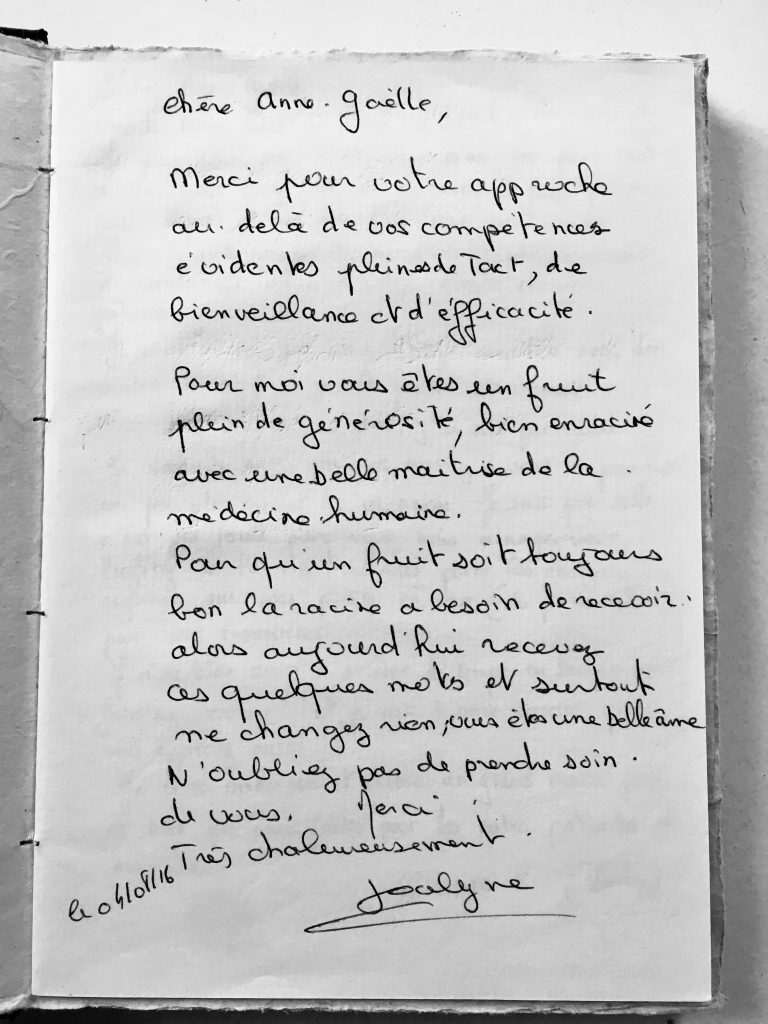 chère Anne-Gaëlle,
Merci pour votre approche
au-delà de vos compétences
évidentes pleines de Tact, de
bienveillance et d'éfficacité.
Pour moi vous êtes un fruit
plein de générosité, bien enraciné
avec une belle maitrise de la
médecine humaine.
Pour qu'un fruit soit toujours
bon la racine a besoin de recevoir.
alors aujourd'hui recevez
ces quelques mots et surtout
ne changez rien, vous êtes une belle âme
N'oubliez pas de prendre soin
de vous. Merci
Très chaleureusement.
le 04/08/16
Jocelyne